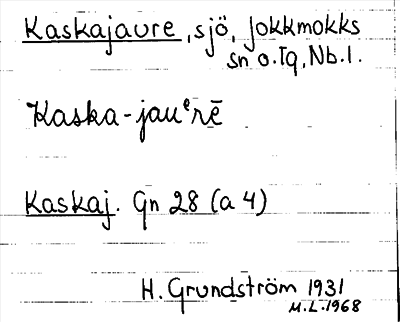 Kaskajaure, sjö, Jokkmokks
sn o. Tq, Nb. l.
Kaska-jauᵉrē
Kaskaj. Gn 28 (a 4)
H. Grundström 1931
M.L. 1968